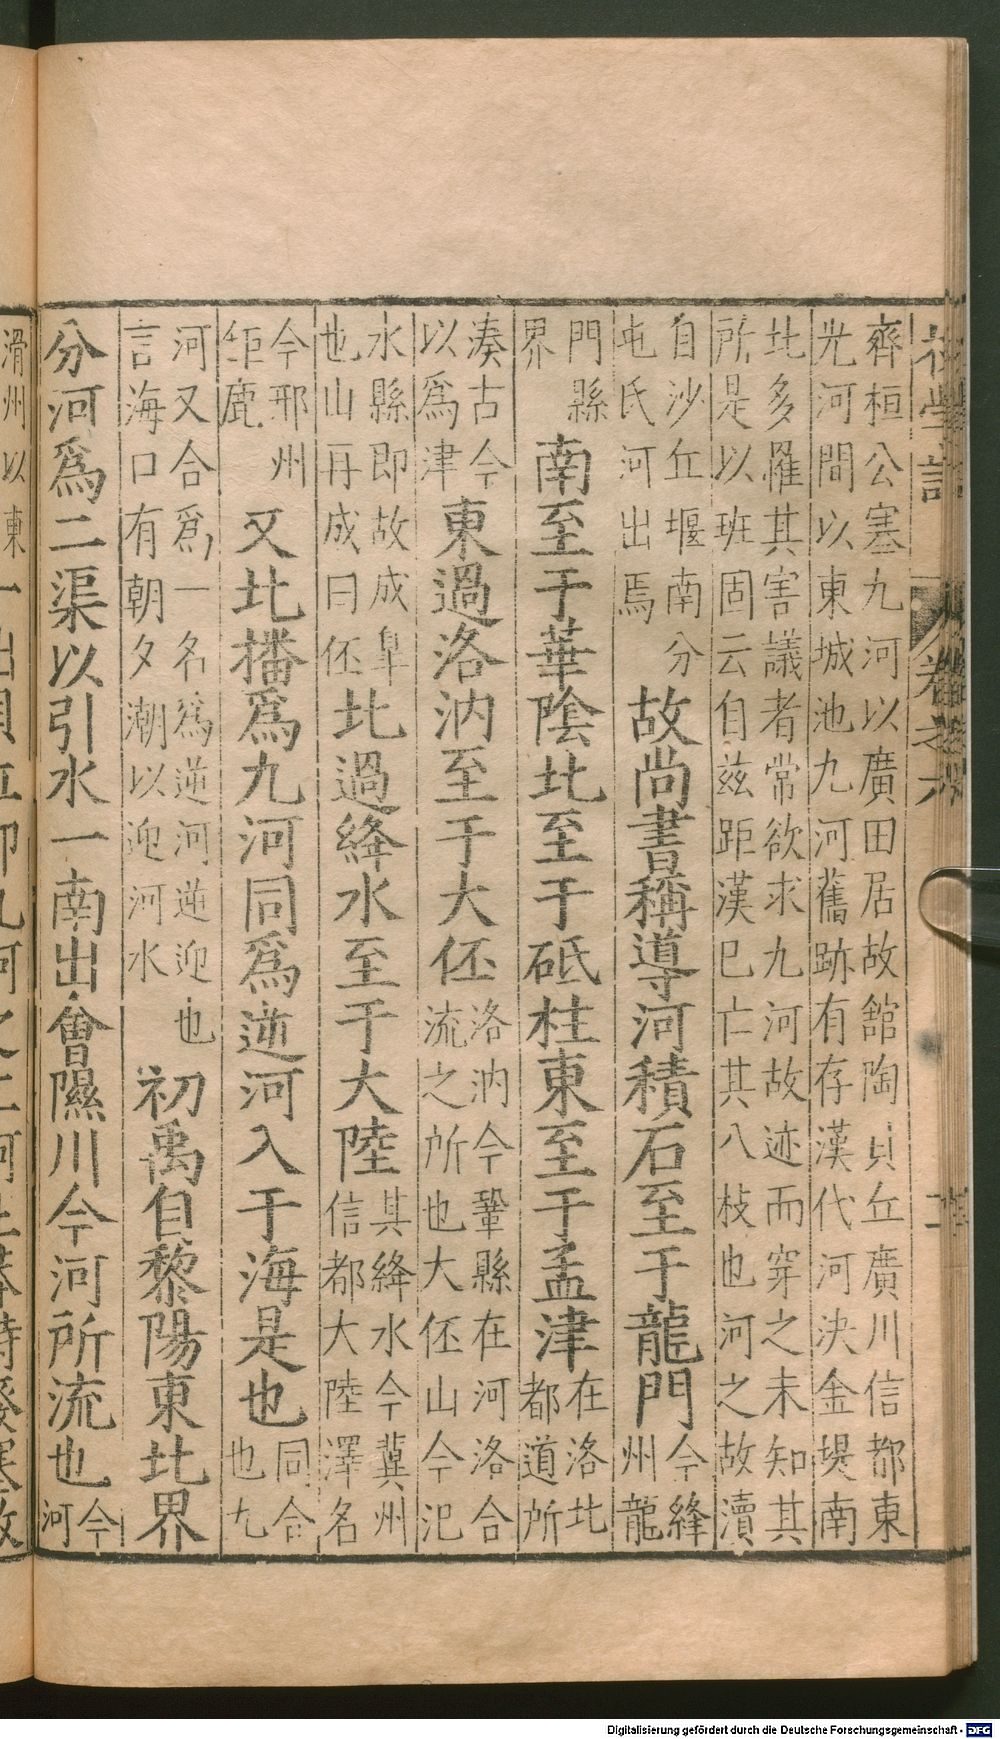 齊桓公塞九河以廣田居故舘陶貝丘廣川信都東
光河間以東城池九河舊跡有存漢代河決金堤南
北多罹其害議者常欲求九河故迹而穿之未知其
所是以班固云自茲距漢已亡其八枝也河之故瀆
自沙丘堰南分
屯氏河出焉
故尚書稱導河積石至于龍門
今絳
州龍
門縣
界
南至于華陰北至于砥柱東至于孟津
在洛北
都道所
湊古今
以爲津
東過洛汭至于大伾
洛汭今鞏縣在河洛合
流之所也大伾山今汜
水縣即故成皐
也山再成曰伾
北過絳水至于大陸
其絳水今冀州
信都大陸澤名
今邢州
鉅鹿
又北播爲九河同爲逆河入于海是也
同合
也九
河又合爲一名爲逆河逆迎也
言海口有朝夕潮以迎河水
初禹自黎陽東北界
分河爲二渠以引水一南出會隰川今河所流也
今
河
滑州以東一出貝丘即九河之
Digitalisierung gefördert durch die Deutsche Forschungsgemeinschaft - DFG